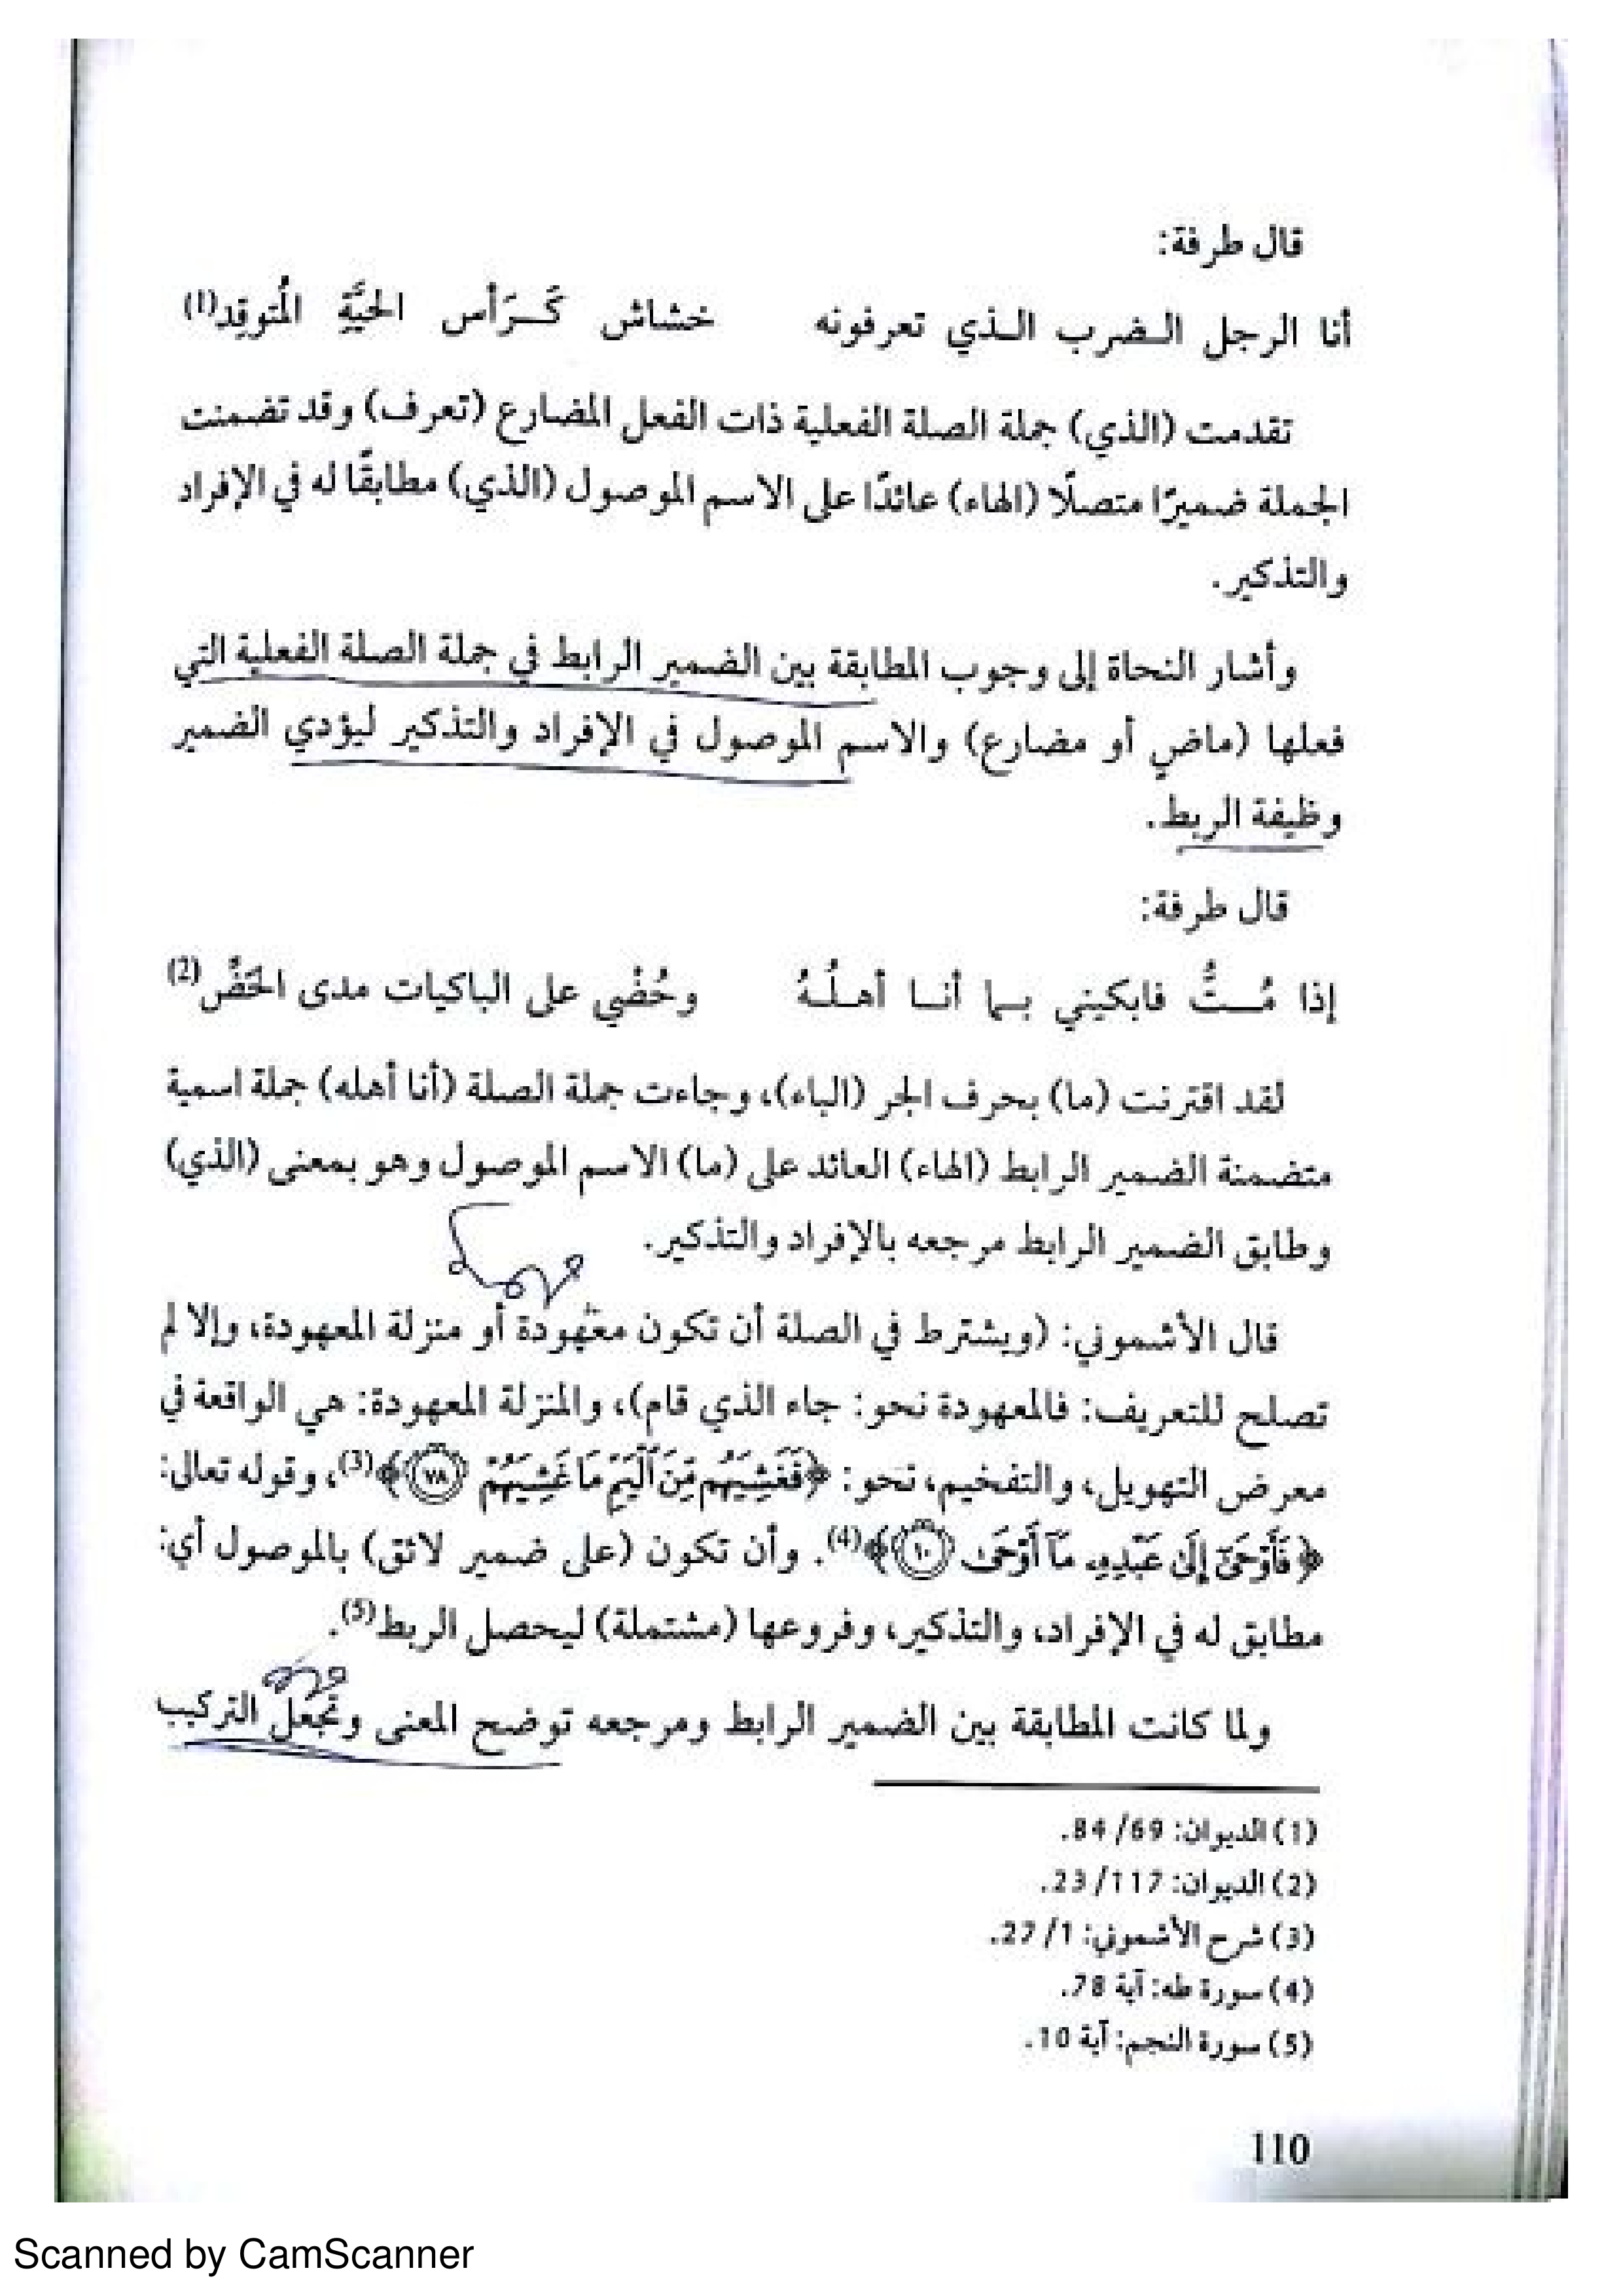 قال طرفة:
أنا الرجل الـضرب الـذي تعرفونه خشاش كَـرَأس الحيَّةِ المُتوقِد(1)
تقدمت (الذي) جملة الصلة الفعلية ذات الفعل المضارع (تعرف) وقد تضمنت
الجملة ضميرًا متصلًا (الهاء) عائدًا على الاسم الموصول (الذي) مطابقًا له في الإفراد
والتذكير.
وأشار النحاة إلى وجوب المطابقة بين الضمير الرابط في جملة الصلة الفعلية التي
فعلها (ماضٍ أو مضارع) والاسم الموصول في الإفراد والتذكير ليؤدي الضمير
وظيفة الربط.
قال طرفة:
إذا مُـتُّ فابكيني بـما أنـا أهـلُـهُ وحُضْي على الباكيات مدى الحَضَّ(2)
لقد اقترنت (ما) بحرف الجر (الباء)، وجاءت جملة الصلة (أنا أهله) جملة اسمية
متضمنة الضمير الرابط (الهاء) العائد على (ما) الاسم الموصول وهو بمعنى (الذي)
وطابق الضمير الرابط مرجعه بالإفراد والتذكير.
قال الأشموني: (ويشترط في الصلة أن تكون معهودة أو منزلة المعهودة، وإلا لم
تصلح للتعريف: فالمعهودة نحو: جاء الذي قام)، والمنزلة المعهودة: هي الواقعة في
معرض التهويل، والتفخيم، نحو: ﴿فَغَشِيَهُم مِّنَ ٱلْيَمِّ مَا غَشِيَهُمْ ٧٨﴾(3)، وقوله تعالى:
﴿فَأَوْحَىٰٓ إِلَىٰ عَبْدِهِۦ مَآ أَوْحَىٰ ١٠﴾(4). وأن تكون (على ضمير لائق) بالموصول أي:
مطابق له في الإفراد، والتذكير، وفروعها (مشتملة) ليحصل الربط(5).
ولما كانت المطابقة بين الضمير الرابط ومرجعه توضح المعنى وتجعل التركيب
(1) الديوان: 69/ 84.
(2) الديوان: 117/ 23.
(3) شرح الأشموني: 1/ 27.
(4) سورة طه: آية 78.
(5) سورة النجم: آية 10.
110
Scanned by CamScanner